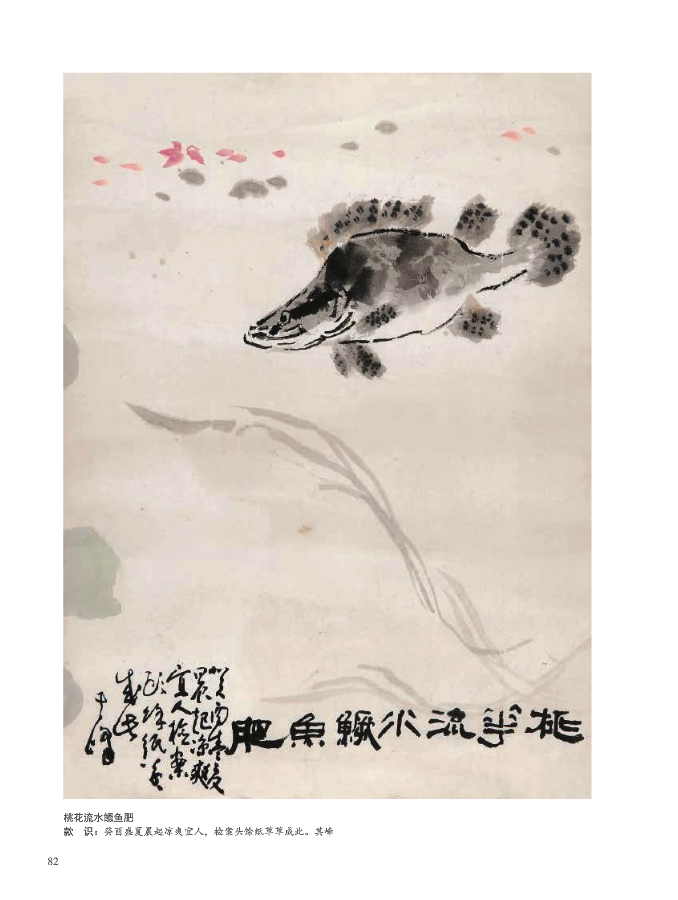 桃華流水鱖魚肥
癸酉盛夏
晨起凉爽
宜人检案
头馀纸草
草成此
其峰
桃花流水鳜鱼肥
款　识：癸酉盛夏晨起凉爽宜人，检案头馀纸草草成此。其峰
82